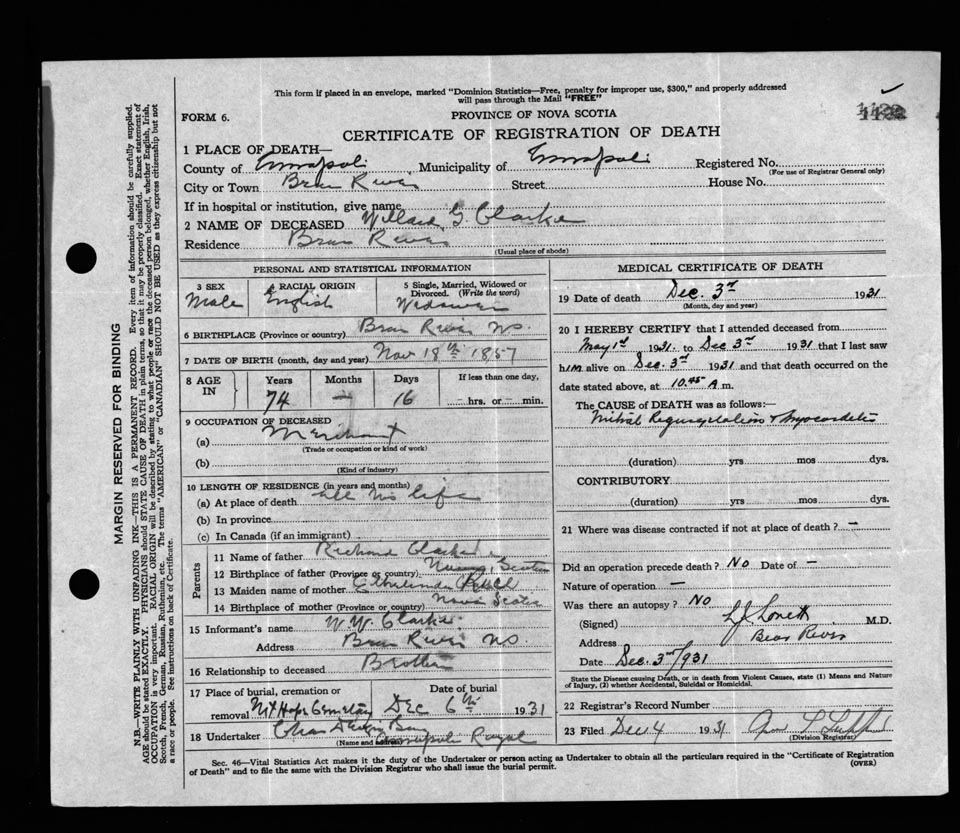 This form if placed in an envelope, marked "Dominion Statistics—Free, penalty for improper use, $300," and properly addressed
will pass through the Mail "FREE"
FORM 6.
PROVINCE OF NOVA SCOTIA
CERTIFICATE OF REGISTRATION OF DEATH
1 PLACE OF DEATH—
County of Annapolis Municipality of Annapolis Registered No.
(For use of Registrar General only)
City or Town Bear River Street House No.
If in hospital or institution, give name
2 NAME OF DECEASED Willard G. Clarke
Residence Bear River
(Usual place of abode)
PERSONAL AND STATISTICAL INFORMATION
3 SEX 4 RACIAL ORIGIN 5 Single, Married, Widowed or Divorced. (Write the word)
Male English Widower
6 BIRTHPLACE (Province or country) Bear River N.S.
7 DATE OF BIRTH (month, day and year) Nov 18th 1857
8 AGE IN Years Months Days If less than one day,
74 — 16 — hrs. or — min.
9 OCCUPATION OF DECEASED
(a) Merchant
(Trade or occupation or kind of work)
(b)
(Kind of industry)
10 LENGTH OF RESIDENCE (in years and months)
(a) At place of death all his life
(b) In province
(c) In Canada (if an immigrant)
Parents
11 Name of father Richard Clarke
12 Birthplace of father (Province or country) Nova Scotia
13 Maiden name of mother
14 Birthplace of mother (Province or country) Nova Scotia
15 Informant's name W.W. Clarke
Address Bear River N.S.
16 Relationship to deceased Brother
17 Place of burial, cremation or removal Mt Hope Cemetery Date of burial Dec 6th 1931
18 Undertaker Annapolis Royal
(Name and address)
MEDICAL CERTIFICATE OF DEATH
19 Date of death Dec. 3rd 1931
(Month, day and year)
20 I HEREBY CERTIFY that I attended deceased from
May 1st 1931. to Dec 3rd 1931 that I last saw
him alive on Dec. 3rd 1931 and that death occurred on the
date stated above, at 10.45 A m.
The CAUSE of DEATH was as follows:—
Mitral Regurgitation & Myocarditis
(duration) yrs mos dys.
CONTRIBUTORY
(duration) yrs mos dys.
21 Where was disease contracted if not at place of death? —
Did an operation precede death? No Date of —
Nature of operation —
Was there an autopsy? No
(Signed) L J Lovett M.D.
Address Bear River
Date Dec. 3rd/931
State the Disease causing Death, or in death from Violent Causes, state (1) Means and Nature
of Injury, (2) whether Accidental, Suicidal or Homicidal.
22 Registrar's Record Number
23 Filed Dec 4 1931
(Division Registrar)
Sec. 46—Vital Statistics Act makes it the duty of the Undertaker or person acting as Undertaker to obtain all the particulars required in the "Certificate of Registration
of Death" and to file the same with the Division Registrar who shall issue the burial permit.
(OVER)
MARGIN RESERVED FOR BINDING
N.B.—WRITE PLAINLY WITH UNFADING INK—THIS IS A PERMANENT RECORD. Every item of information should be carefully supplied.
AGE should be stated EXACTLY. PHYSICIANS should STATE CAUSE OF DEATH in plain terms, so that it may be properly classified. Exact statement of
OCCUPATION is very important. RACIAL ORIGIN will be described by stating to what people or race the deceased person belonged, whether English, Irish,
Scotch, French, German, Russian, Ruthenian, etc. The terms "AMERICAN" or "CANADIAN" SHOULD NOT BE USED as they express citizenship but not
a race or people. See instructions on back of Certificate.